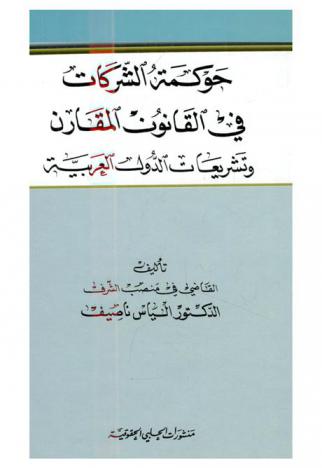 حوكمة الشركات
في القانون المقارن
وتشريعات الدول العربية
تأليف
القاضي في منصب الشرف
الدكتور الياس ناصيف
منشورات الحلبي الحقوقية